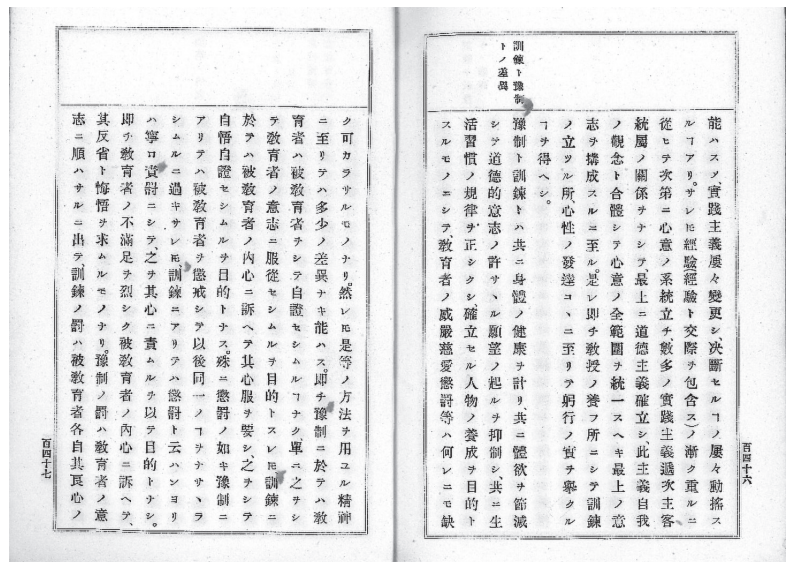 百四十六
訓練ト豫制
トノ差異
能ハスノ、實踐主義屢々變更シ、决斷セルヿノ屢々動搖ス
ルヿアリ。サレ𪜈經驗(經驗ト交際ヲ包含ス)ノ漸ク重ルニ
從ヒテ次第ニ心意ノ系統立チ、數多ノ實踐主義遞次主客
統屬ノ關係ヲナシテ、最上ニ道德主義確立シ、此主義自我
ノ觀念ト合體シテ心意ノ全範圍ヲ統一スヘキ最上ノ意
志ヲ構成スルニ至ル。是レ即チ敎授ノ養フ所ニシテ訓練
ノ立ツル所、心性ノ發達コヽニ至リテ躬行ノ實ヲ擧クル
ヿヲ得ヘシ。
豫制ト訓練トハ共ニ身體ノ健康ヲ計リ、共ニ體欲ヲ節减
シテ道德的意志ノ許サヽル願望ノ起ルヲ抑制シ、共ニ生
活習慣ノ規律ヲ正シクシ、確立セル人物ノ養成ヲ目的ト
スルモノニシテ、敎育者ノ威嚴慈愛懲罰等ハ何レニモ缺
ク可カラサルモノナリ。然レ𪜈是等ノ方法ヲ用ユル精神
ニ至リテハ多少ノ差異ナキ能ハス。即チ豫制ニ於テハ敎
育者ハ被敎育者ヲシテ自證セシムルヿナク、單ニ之ヲシ
テ敎育者ノ意志ニ服從セシムルヲ目的トスレ𪜈訓練ニ
於テハ被敎育者ノ内心ニ訴ヘテ其心服ヲ要シ、之ヲシテ
自悟自證セシムルヲ目的トナス。殊ニ懲罰ノ如キ豫制ニ
アリテハ被敎育者ヲ懲戒シテ以後同一ノヿヲナサヽラ
シムルニ過キサレ𪜈、訓練ニアリテハ懲罰ト云ハンヨリ
ハ寧ロ責罰ニシテ、之ヲ其心ニ責ムルヲ以テ目的トナシ。
即チ敎育者ノ不滿足ヲ烈シク被敎育者ノ内心ニ訴ヘテ、
其反省ト悔悟ヲ求ムルモノナリ。豫制ノ罰ハ敎育者ノ意
志ニ順ハサルニ出テ訓練ノ罰ハ被敎育者各自其良心ノ
百四十七